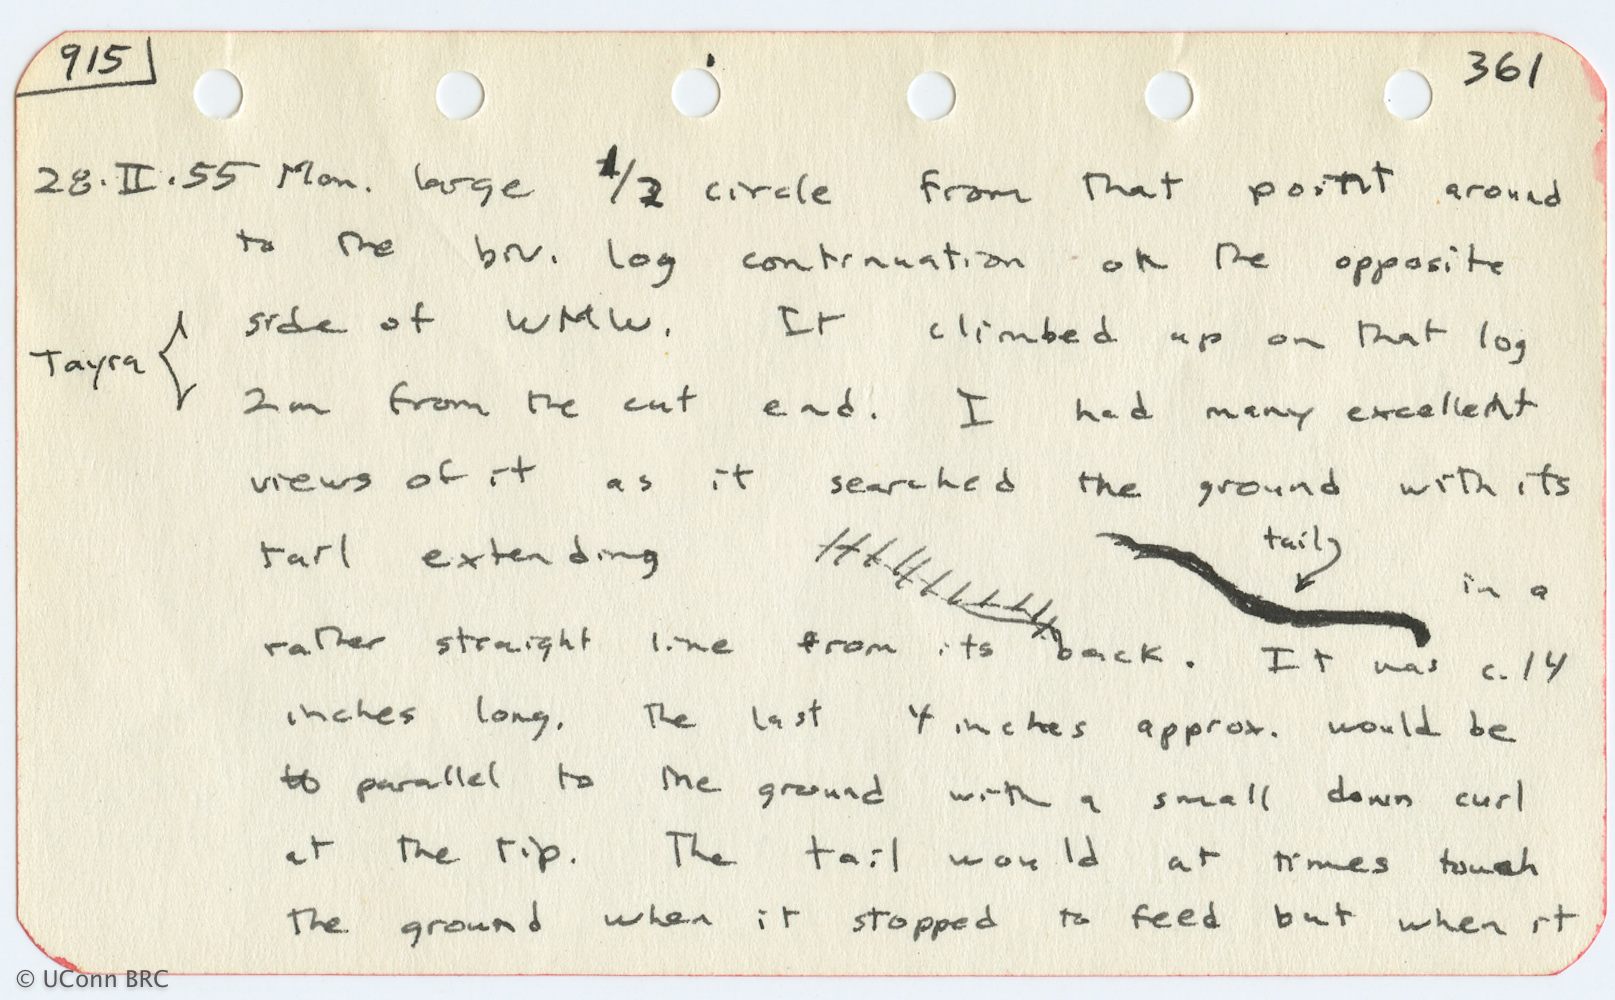 915
361
28.II.55 Mon. large 1/2 circle from that point around
to the brv. log continuation on the opposite
side of WMW. It climbed up on that log
Tayra {
2m from the cut end. I had many excellent
views of it as it searched the ground with its
tail extending
tail
in a
rather straight line from its back. It was c.14
inches long. The last 4 inches approx. would be
parallel to the ground with a small down curl
at the tip. The tail would at times touch
the ground when it stopped to feed but when it
© UConn BRC